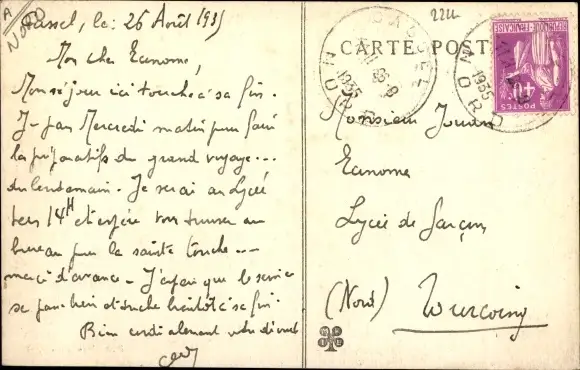 A
NORD
Cassel, le: 26 Août 1935
Mon cher Econome,
Mon séjour ici touche à sa fin.
Je pars Mercredi matin pour faire
les préparatifs du grand voyage...
du lendemain. Je serai au Lycée
vers 14H et espère vous trouver au
bureau pour la sainte touche...
merci d'avance. J'espère que le service
se passe bien et touche bientôt à sa fin.
Bien cordialement votre dévoué
222
CARTE POSTALE
CASSEL
NORD
1935
POSTES
RÉPUBLIQUE FRANÇAISE
40c
Monsieur
Econome
Lycée de Garçons
(Nord) Tourcoing